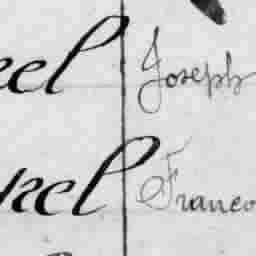 eel Joseph
kel Franco